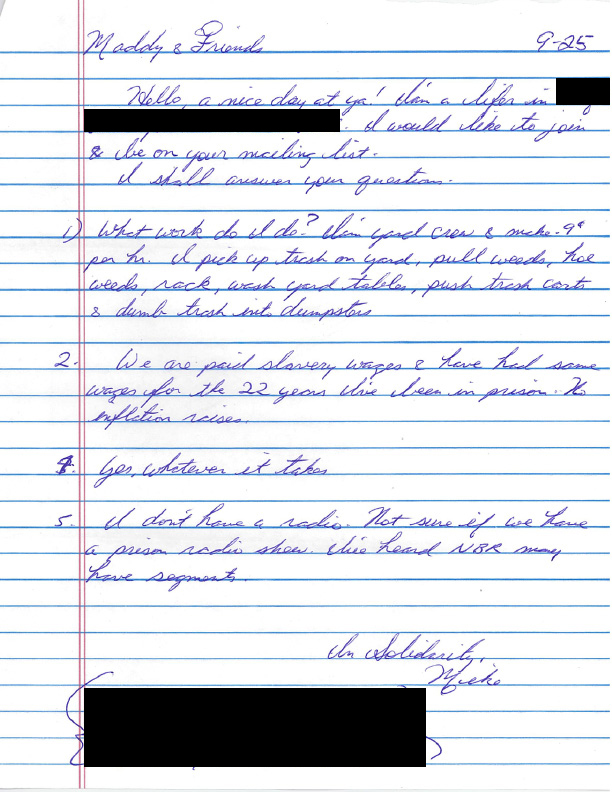 Maddy & Friends 9-25
Hello, a nice day at ya! I'm a lifer in
. I would like to join
& be on your mailing list.
I shall answer your questions.
1) What work do I do? I'm yard crew & make .9¢
per hr. I pick up trash on yard, pull weeds, hoe
weeds, rack, wash yard tables, push trash carts
& dumb trash into dumpsters
2. We are paid slavery wages & have had same
wages for the 22 years I've been in prison. No
inflation raises.
4. Yes, whatever it takes
5. I don't have a radio. Not sure if we have
a prison radio show. I've heard NBR may
have segments.
In Solidarity,
Mieke